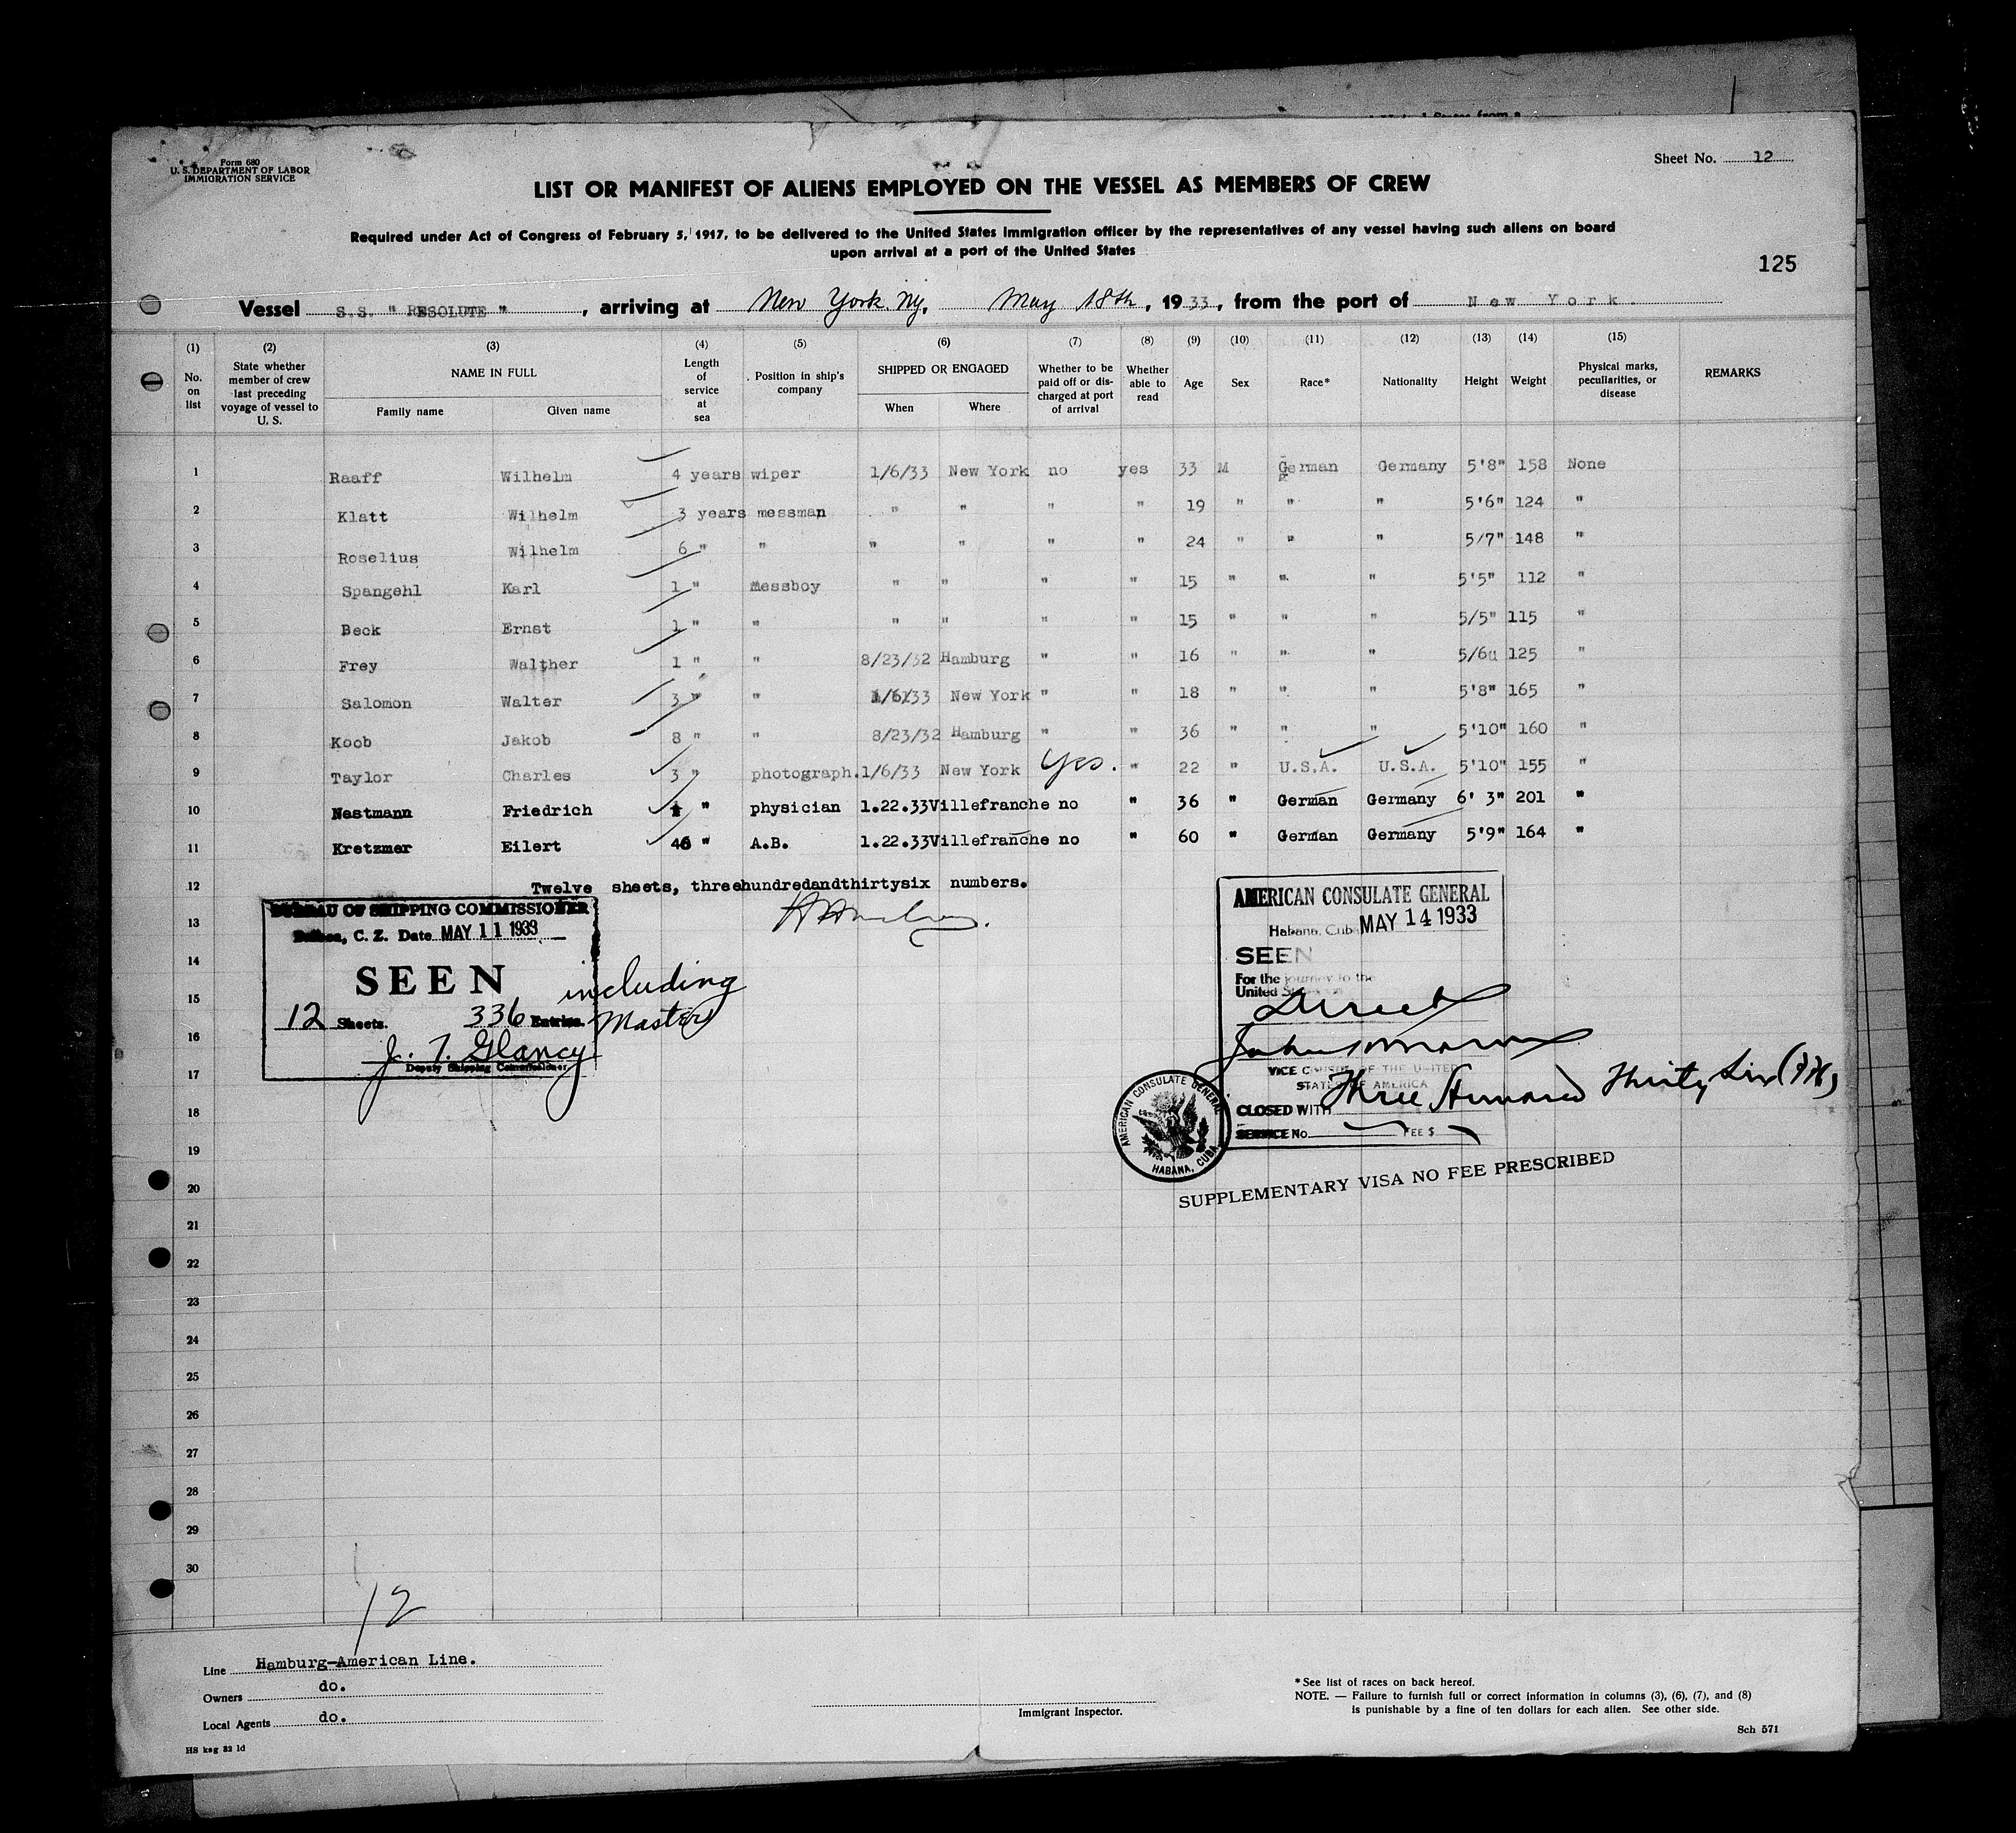 Form 680
U. S. DEPARTMENT OF LABOR
IMMIGRATION SERVICE
Sheet No. 12
LIST OR MANIFEST OF ALIENS EMPLOYED ON THE VESSEL AS MEMBERS OF CREW
Required under Act of Congress of February 5, 1917, to be delivered to the United States immigration officer by the representatives of any vessel having such aliens on board
upon arrival at a port of the United States
125
Vessel S.S. " RESOLUTE " , arriving at New York. Ny, May 18th, 1933, from the port of New York.
(1) (2) (3) (4) (5) (6) (7) (8) (9) (10) (11) (12) (13) (14) (15)
No. on list State whether member of crew last preceding voyage of vessel to U. S. NAME IN FULL Family name Given name Length of service at sea Position in ship's company SHIPPED OR ENGAGED When Where Whether to be paid off or discharged at port of arrival Whether able to read Age Sex Race* Nationality Height Weight Physical marks, peculiarities, or disease REMARKS
1 Raaff Wilhelm 4 years wiper 1/6/33 New York no yes 33 M German Germany 5'8" 158 None
2 Klatt Wilhelm 3 years messman " " " " 19 " " " 5'6" 124 "
3 Roselius Wilhelm 6 " " " " " " 24 " " " 5/7" 148 "
4 Spangehl Karl 1 " messboy " " " " 15 " " " 5'5" 112 "
5 Beck Ernst 1 " " " " " " 15 " " " 5/5" 115 "
6 Frey Walther 1 " " 8/23/32 Hamburg " " 16 " " " 5/6u 125 "
7 Salomon Walter 3 " " 1/6/33 New York " " 18 " " " 5'8" 165 "
8 Koob Jakob 8 " " 8/23/32 Hamburg " " 36 " " " 5'10" 160 "
9 Taylor Charles 3 " photograph. 1/6/33 New York Yes. " 22 " U.S.A. U.S.A. 5'10" 155 "
10 Nestmann Friedrich " physician 1.22.33 Villefranche no " 36 " German Germany 6' 3" 201 "
11 Kretzmer Eilert 46 " A.B. 1.22.33 Villefranche no " 60 " German Germany 5'9" 164 "
12 Twelve sheets, threehundredandthirtysix numbers.
13
14
15
16
17
18
19
20
21
22
23
24
25
26
27
28
29
30
BUREAU OF SHIPPING COMMISSIONER
Balboa, C. Z. Date MAY 11 1933
SEEN
12 Sheets. 336 Entries. including Master
J. T. Glancy
Deputy Shipping Commissioner
AMERICAN CONSULATE GENERAL
Habana, Cuba MAY 14 1933
SEEN
For the journey to the
United States
Direct
VICE CONSUL OF THE UNITED
STATES OF AMERICA
Three Hundred Thirty Six (336)
CLOSED WITH
SERVICE No. FEE $
AMERICAN CONSULATE GENERAL
HABANA, CUBA
SUPPLEMENTARY VISA NO FEE PRESCRIBED
12
Line Hamburg-American Line.
Owners do.
Local Agents do.
HS ksg 32 ld
Immigrant Inspector.
* See list of races on back hereof.
NOTE. — Failure to furnish full or correct information in columns (3), (6), (7), and (8)
is punishable by a fine of ten dollars for each alien. See other side.
Sch 571